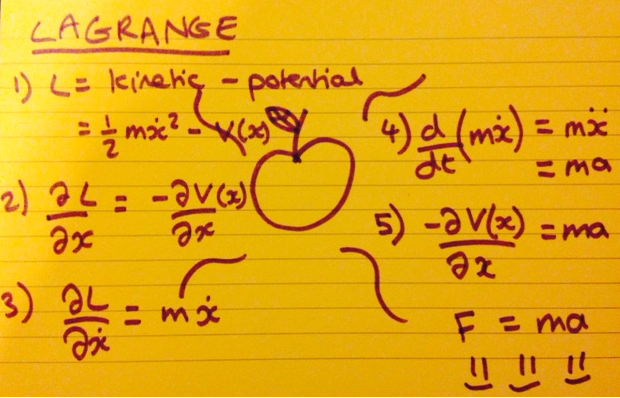 LAGRANGE
1) L = kinetic - potential
= 1/2 mẋ² - V(x)
2) ∂L/∂x = -∂V(x)/∂x
3) ∂L/∂ẋ = mẋ
4) d/dt (mẋ) = mẍ
= ma
5) -∂V(x)/∂x = ma
F = ma